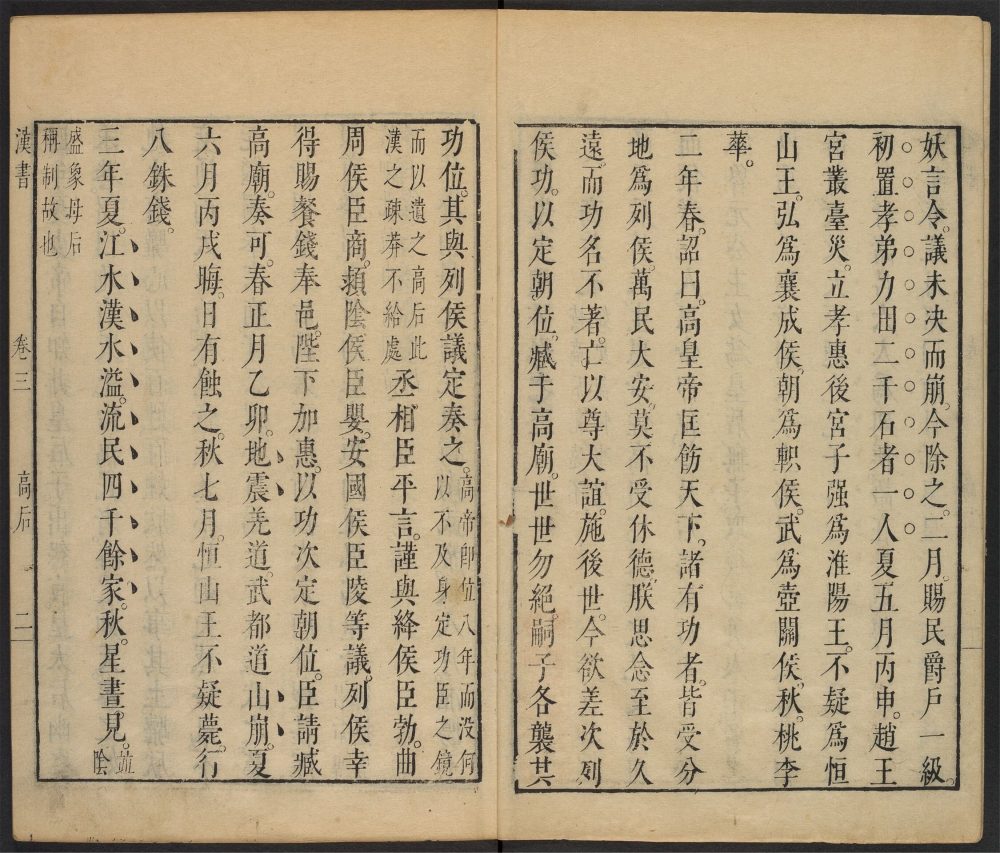 妖言令。議未决而崩。今除之。二月。賜民爵戶一級。
初置孝弟力田二千石者一人夏五月丙申。趙王
宮叢臺災。立孝惠後宮子强爲淮陽王。不疑爲恒
山王。弘爲襄成侯。朝爲軹侯。武爲壺關侯。秋。桃李
華。
二年春。詔曰。高皇帝匡飭天下。諸有功者。皆受分
地爲列侯。萬民大安。莫不受休德。朕思念至於久
遠。而功名不著。亡以尊大誼。施後世。今欲差次列
侯功。以定朝位。臧于高廟。世世勿絕。嗣子各襲其
功位。其與列侯議定奏之。高帝卽位八年而没何
以不及身定功臣之鏡
而以遺之高后此
漢之疎莽不給處
丞相臣平言。謹與絳侯臣勃。曲
周侯臣商。潁陰侯臣嬰。安國侯臣陵等議。列侯幸
得賜餐錢奉邑。陛下加惠。以功次定朝位。臣請臧
高廟。奏可。春正月乙卯。地震羌道。武都道山崩。夏
六月丙戌晦。日有蝕之。秋七月。恒山王不疑薨。行
八銖錢。
三年夏。江水漢水溢。流民四千餘家。秋。星晝見。
陰
盛象母后
稱制故也
漢書 卷三 高后 二